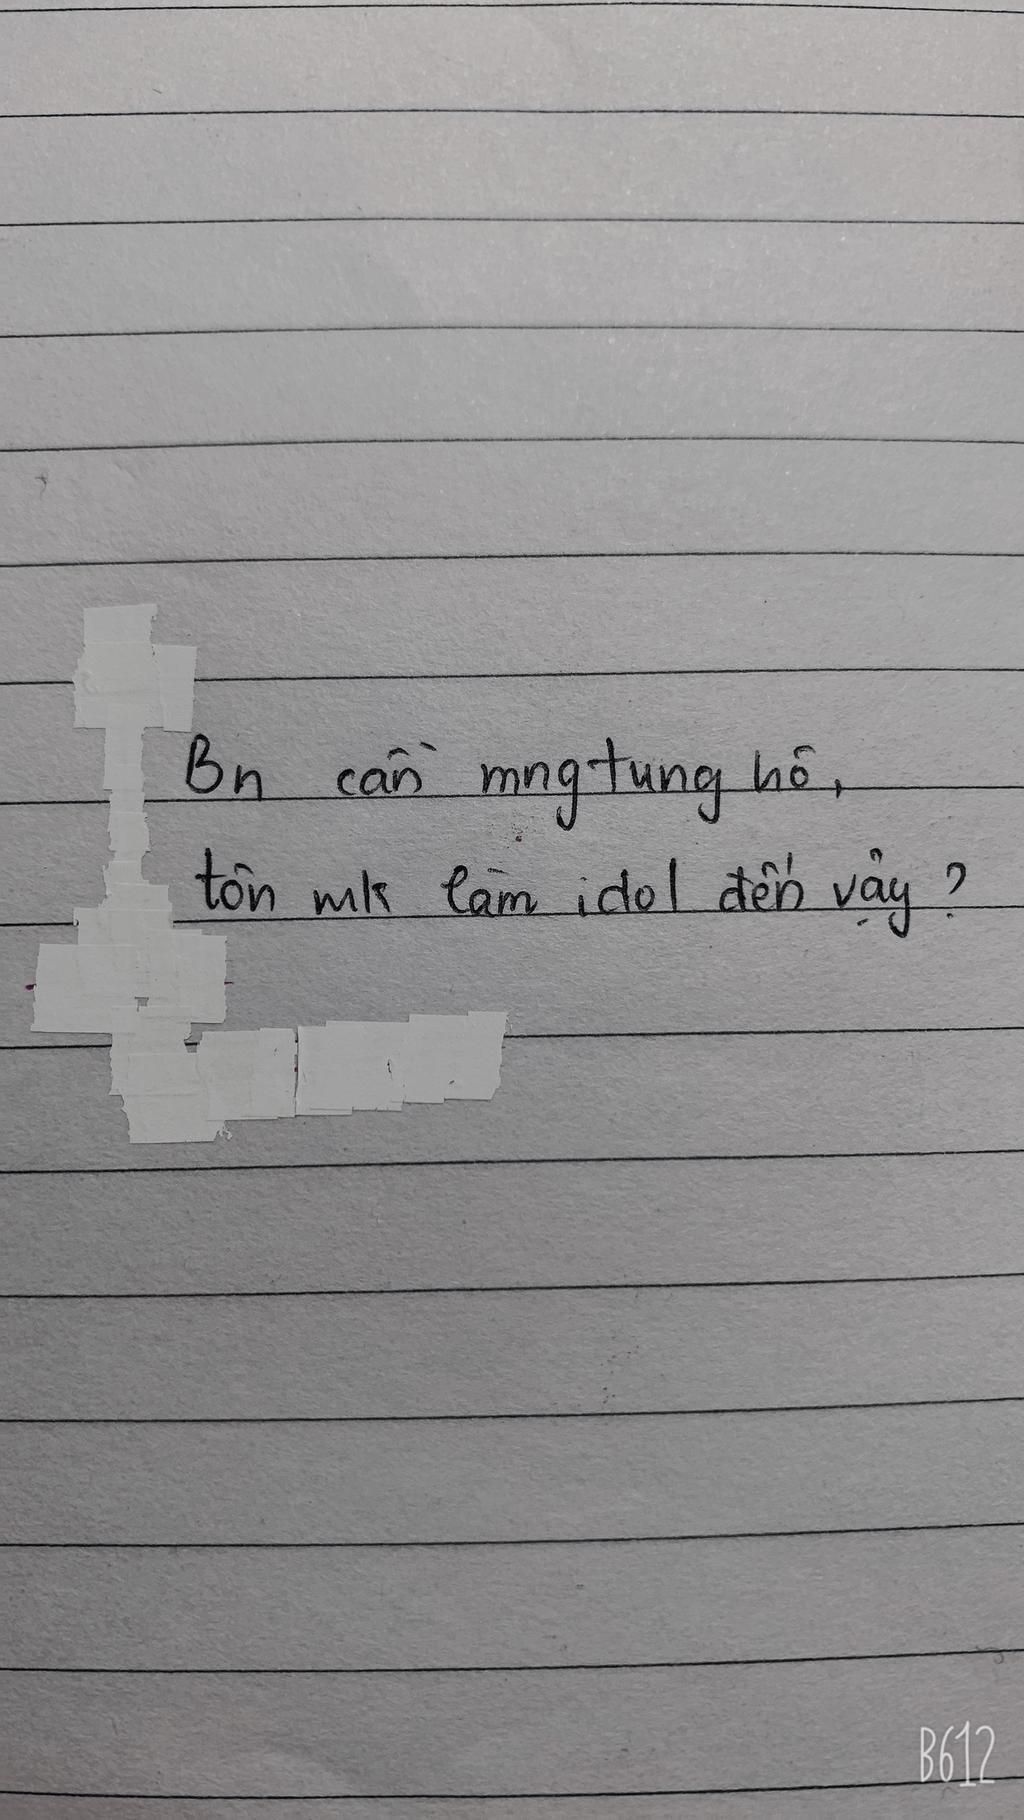 Bn cần mng tung hô,
tôn mk làm idol đến vậy?
B612